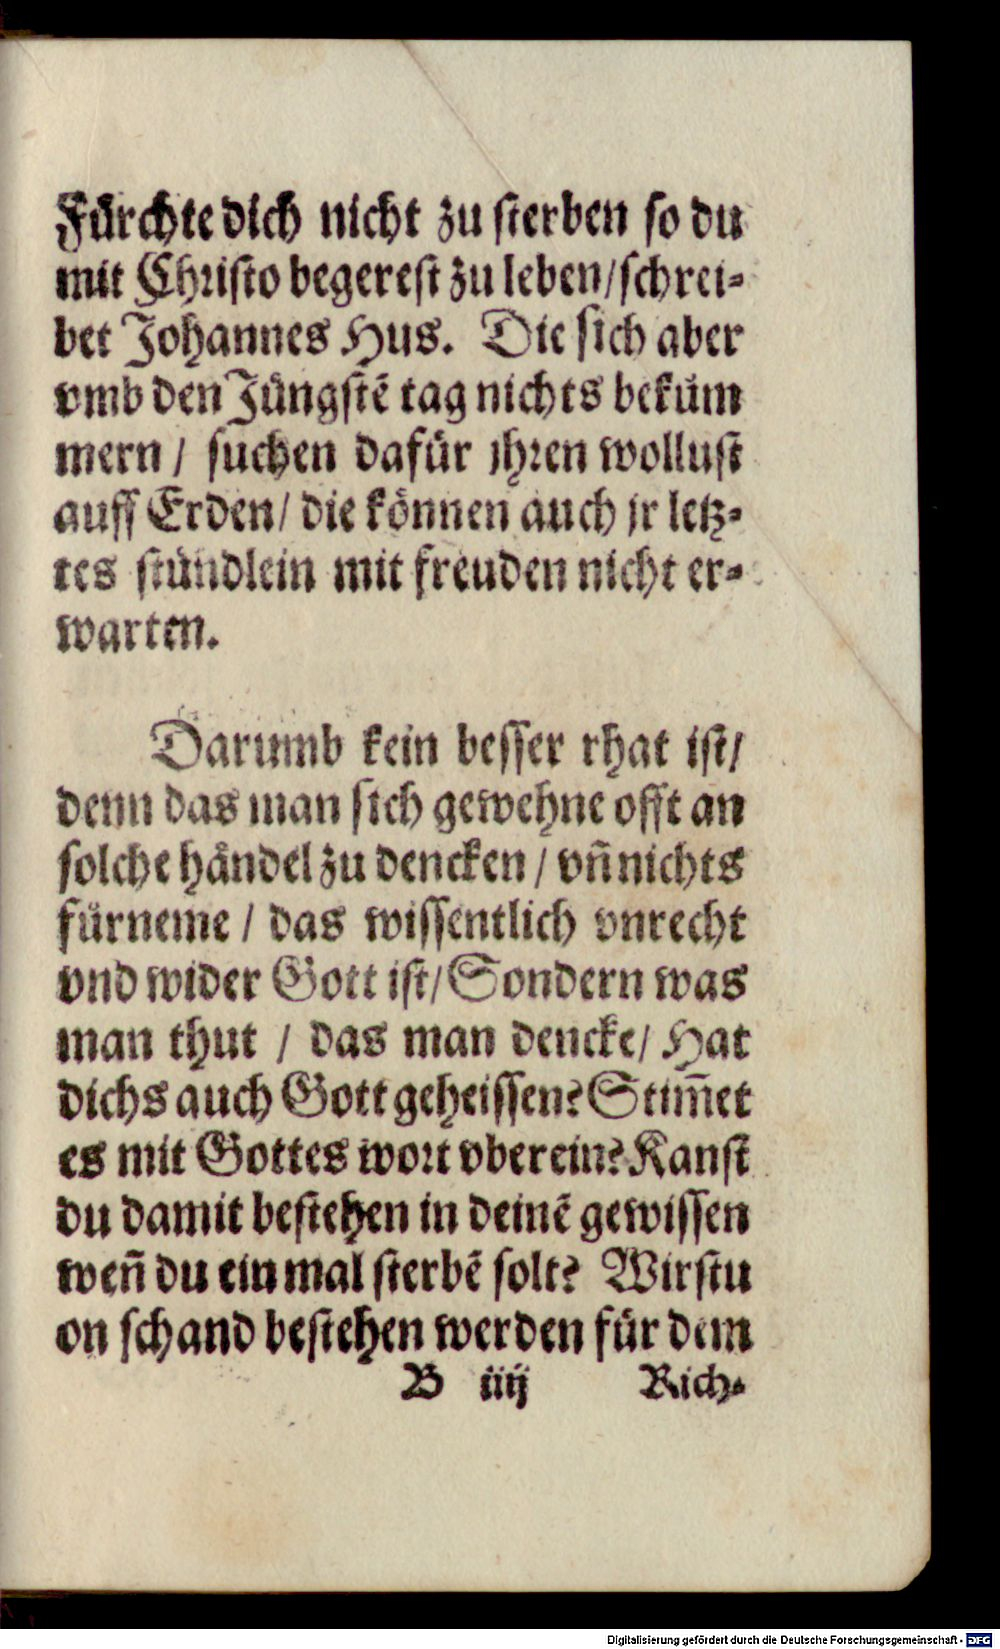 Fürchte dich nicht zu sterben so du
mit Christo begerest zu leben/schrei-
bet Johannes Hus. Die sich aber
vmb den Jüngstē tag nichts bekům
mern / suchen dafür jhren wollust
auff Erden/ die können auch jr letz-
tes stündlein mit freuden nicht er-
warten.
Darumb kein besser rhat ist/
denn das man sich gewehne offt an
solche håndel zu dencken / vñ nichts
fürneme / das wissentlich vnrecht
vnd wider Gott ist/ Sondern was
man thut / das man dencke/ Hat
dichs auch Gott geheissen? Stim̄et
es mit Gottes wort vberein? Kanst
du damit bestehen in deinē gewissen
weñ du ein mal sterbē solt? Wirstu
on schand bestehen werden für dem
B iiij Rich-
Digitalisierung gefördert durch die Deutsche Forschungsgemeinschaft - DFG